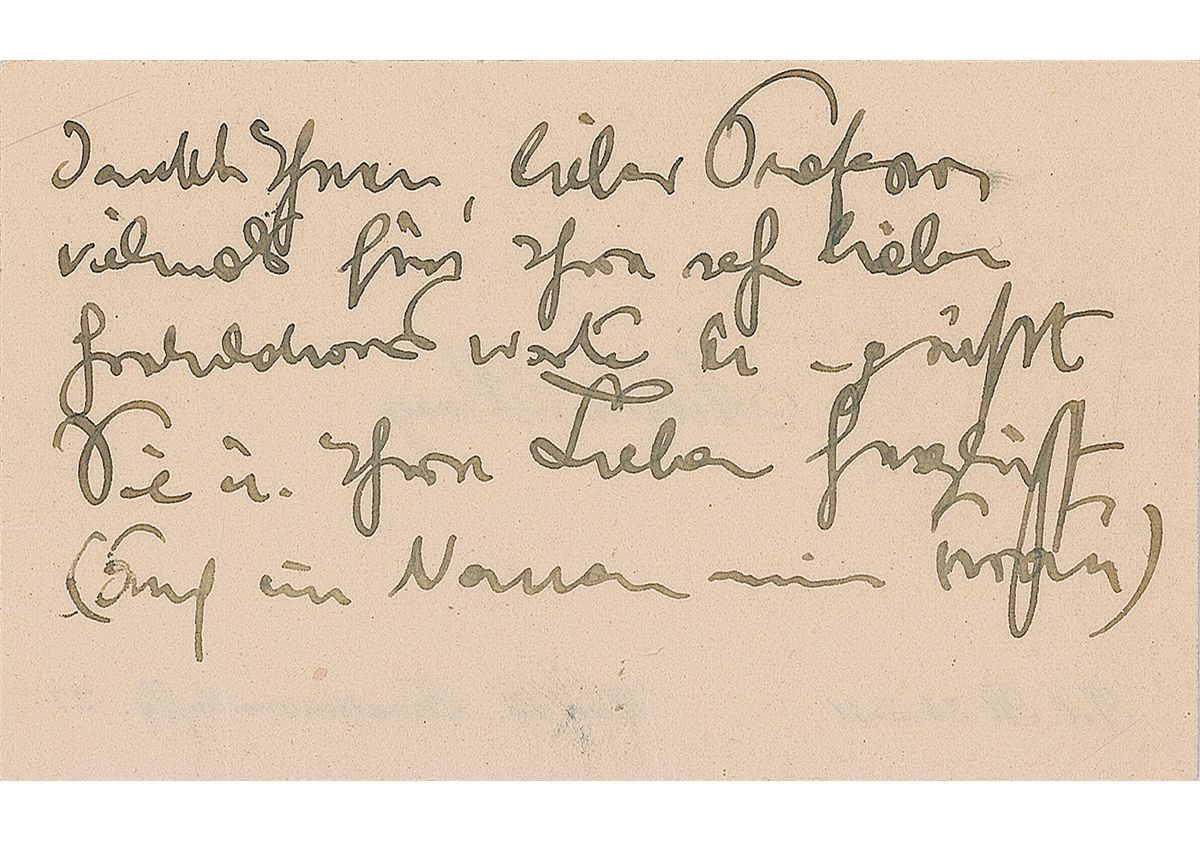 dankt Ihnen, lieber Professor
vielmals für Ihre sehr lieben
Worte u. grüsst
Sie u. Ihre Lieben herzlichst
(Auch im Namen